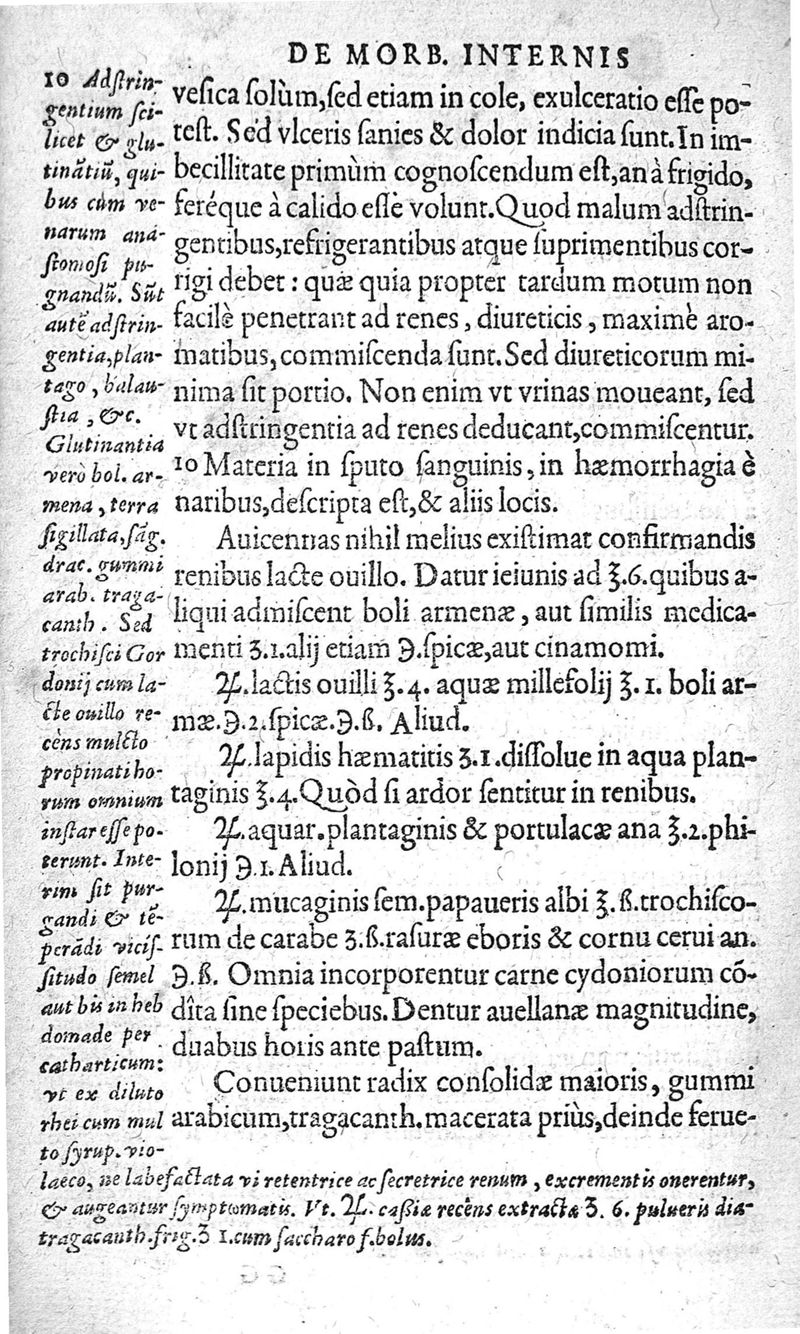 DE MORB. INTERNIS
veſica ſolùm,ſed etiam in cole, exulceratio eſſe po-
teſt. Sed vlceris ſanies & dolor indicia ſunt.In im-
becillitate primùm cognoſcendum eſt,an à frigido,
feréque à calido eſſe volunt.Quod malum adſtrin-
gentibus,refrigerantibus atque ſuprimentibus cor-
rigi debet : quæ quia propter tardum motum non
facilè penetrant ad renes, diureticis, maximè aro-
matibus, commiſcenda ſunt. Sed diureticorum mi-
nima ſit portio. Non enim vt vrinas moueant, ſed
vt adſtringentia ad renes deducant,commiſcentur.
10 Materia in ſputo ſanguinis, in hæmorrhagia è
naribus,deſcripta eſt,& aliis locis.
Auicennas nihil melius exiſtimat confirmandis
renibus lacte ouillo. Datur ieiunis ad ℥.6.quibus a-
liqui admiſcent boli armenæ, aut ſimilis medica-
menti ʒ.1.alij etiam ℈.ſpicæ,aut cinamomi.
℞.lactis ouilli ℥.4. aquæ millefolij ℥.1. boli ar-
mæ.℈.2.ſpicæ.℈.ß. Aliud.
℞.lapidis hæmatitis ʒ.1.diſſolue in aqua plan-
taginis ℥.4.Quòd ſi ardor ſentitur in renibus.
℞.aquar.plantaginis & portulacæ ana ℥.2.phi-
lonij ℈.1.Aliud.
℞.mucaginis ſem.papaueris albi ℥.ß.trochiſco-
rum de carabe ʒ.ß.raſuræ eboris & cornu cerui an.
℈.ß. Omnia incorporentur carne cydoniorum cõ-
dîta ſine ſpeciebus.Dentur auellanæ magnitudine,
duabus horis ante paſtum.
Conueniunt radix conſolidæ maioris, gummi
arabicum,tragacanth.macerata priùs,deinde ferue-
10 Adſtrin-
gentium ſci-
licet & glu-
tinãtiũ, qui-
bus cùm ve-
narum ana-
ſtomoſi pu-
gnandũ. Sũt
autẽ adſtrin-
gentia,plan-
tago, balau-
ſtia, &c.
Glutinantia
verò bol. ar-
mena, terra
ſigillata,ſãg.
drac. gummi
arab. traga-
canth. Sed
trochiſci Gor
donij cum la-
cte ouillo re-
cèns mulcto
propinati ho-
rum omnium
inſtar eſſe po-
terunt. Inte-
rim ſit pur-
gandi & tẽ-
perãdi viciſ-
ſitudo ſemel
aut bis in heb
domade per
catharticum:
vt ex diluto
rhei cum mul
to ſyrup. vio-
laeco, ne labefactata vi retentrice ac ſecretrice renum, excrementis onerentur,
& augeantur ſymptomatis. Vt. ℞. caßiæ recèns extractæ ʒ. 6. pulueris dia-
tragacanth.frig.ʒ 1.cum ſaccharo f.bolus.